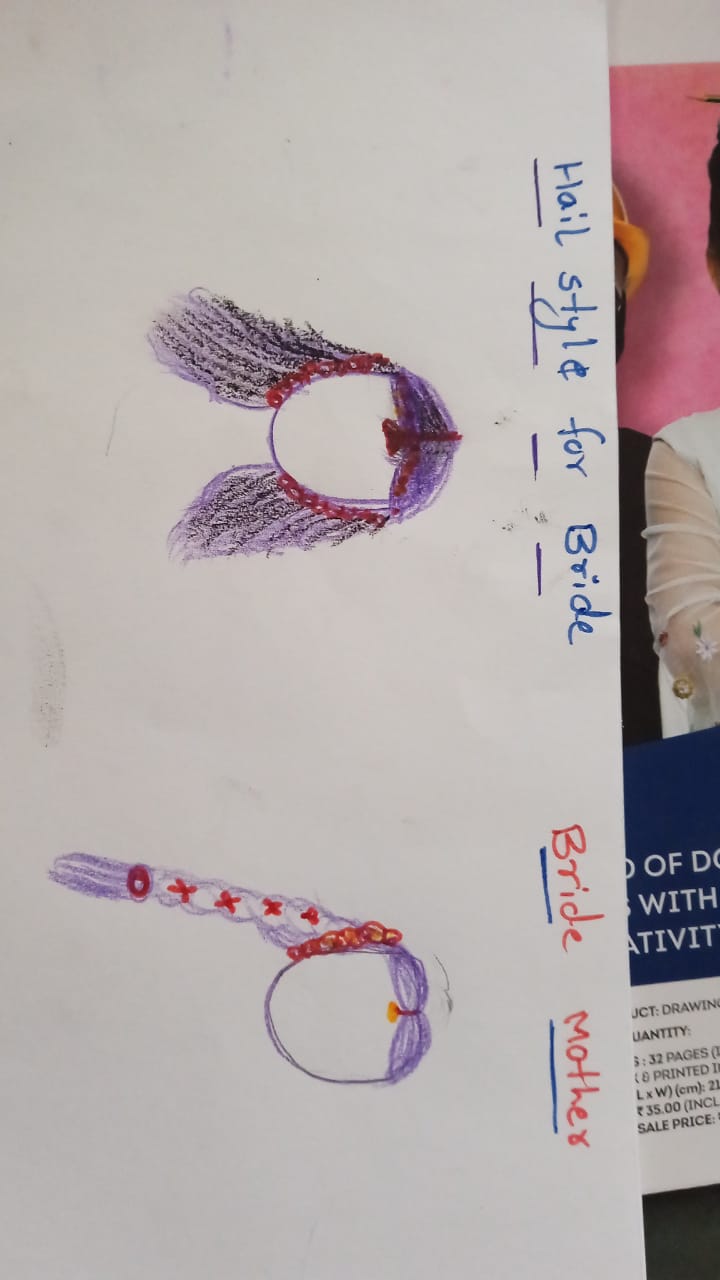 Hail style for Bride
Bride Mother
D OF DO
S WITH
ATIVIT
UCT: DRAWING
UANTITY:
S : 32 PAGES (I
K & PRINTED I
L x W) (cm): 21
₹ 35.00 (INCL
SALE PRICE: ₹